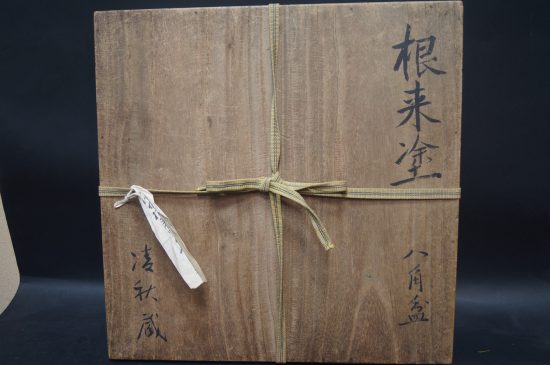 根来塗
八角盆
凌秋蔵